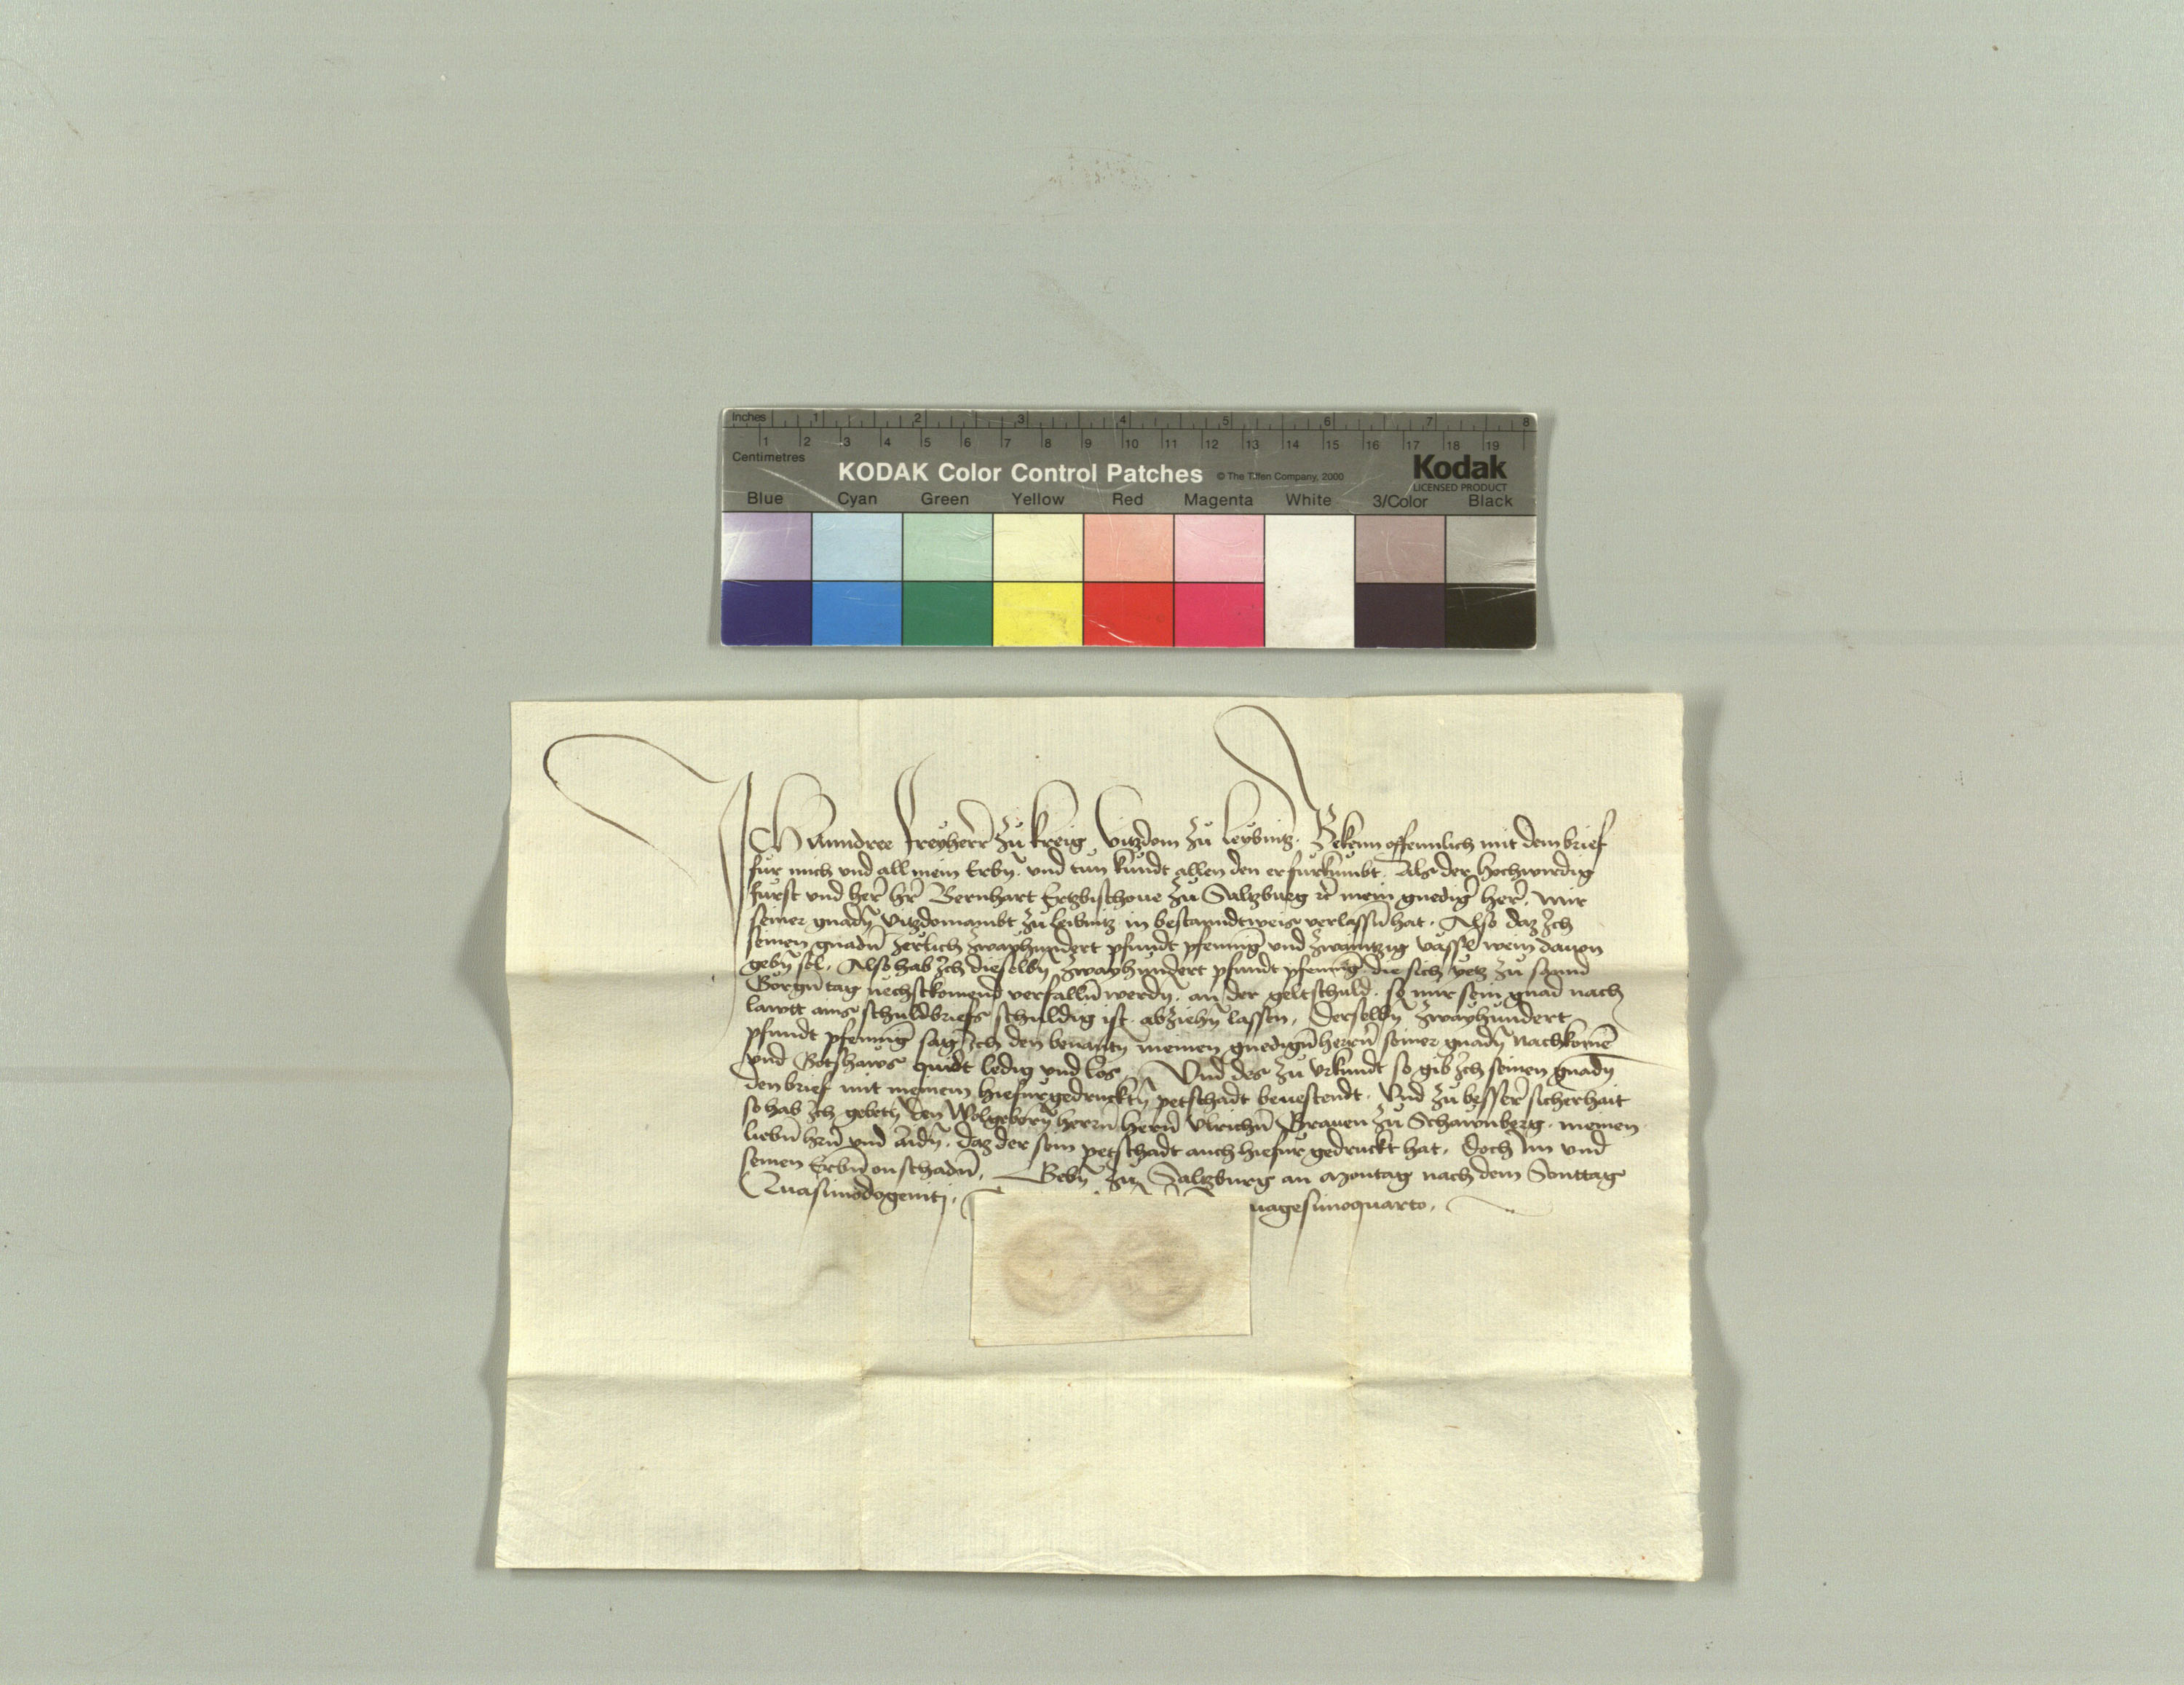 Inches 1 2 3 4 5 6 7 8
1 2 3 4 5 6 7 8 9 10 11 12 13 14 15 16 17 18 19
Centimetres
KODAK Color Control Patches © The Tiffen Company, 2000 Kodak
LICENSED PRODUCT
Blue Cyan Green Yellow Red Magenta White 3/Color Black
ICH Anndree Freyherr zů Kreig Vitzdom zů Leybnitz. Bekenn offennlich mit dem brief
für mich vnd all mein Erbn̄. vnd tůn kůndt allen den er fürkůmbt. Als der hochwirdig
fürst vnd her̄ hr̄ Bernhart Ertzbischoue zů Saltzburg ꝛc̄ mein gnedigr̄ her̄. mir
seiner gnadn̄ Vitzdomambt zů Leibnitz in bestanndtweis verlassn̄ hat. Also daz Ich
seinen gnadn̄ Jerlich zwayhundert pfundt pfenniḡ vnd zwaintzig vässl wein dauon
gebn̄ sol. Also hab Ich dieselbn̄ zwayhundert pfundt pfenniḡ. die sich yetz zů sannd
Görgn̄ tag nechstkomend verfalln̄ werdn̄. an der geltschuld. so mir sein gnad nach
lawtt ains schuldbriefs schuldig ist. abziehn̄ lassen. Derselbn̄ zwayhundert
pfundt pfenniḡ sag Ich den benantn̄ meinen gnedign̄ herrn̄ seiner gnadn̄ nachkomē
vnd Gotshaws quidt ledig vnd los. Vnd des zů vrkundt so gib Ich seinen gnadn̄
den brief mit meinem hiefürgedrucktn̄ petschadt beuestendt. Vnd zů besser̄ sicherhait
so hab Ich gebetn̄ den Wolgeborn̄ herrn̄ hern̄ Vlrichn̄ Grauen zů Schawnberg. meinen
liebn̄ hrn̄ vnd aidn̄. daz der sein petschadt auch hiefür gedruckt hat. Doch Im vnd
seinen Erbn̄ on schadn̄. Gebn̄ zů Saltzburg an Montag nach dem Sonttag
Quasimodogenitj. nagesimoquarto.